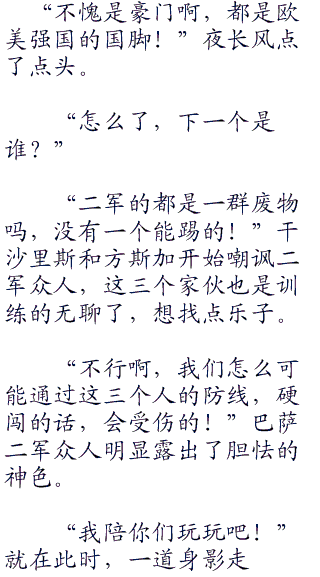 “不愧是豪门啊，都是欧
美强国的国脚！”夜长风点
了点头。
“怎么了，下一个是
谁？”
“二军的都是一群废物
吗，没有一个能踢的！”干
沙里斯和方斯加开始嘲讽二
军众人，这三个家伙也是训
练的无聊了，想找点乐子。
“不行啊，我们怎么可
能通过这三个人的防线，硬
闯的话，会受伤的！”巴萨
二军众人明显露出了胆怯的
神色。
“我陪你们玩玩吧！”
就在此时，一道身影走